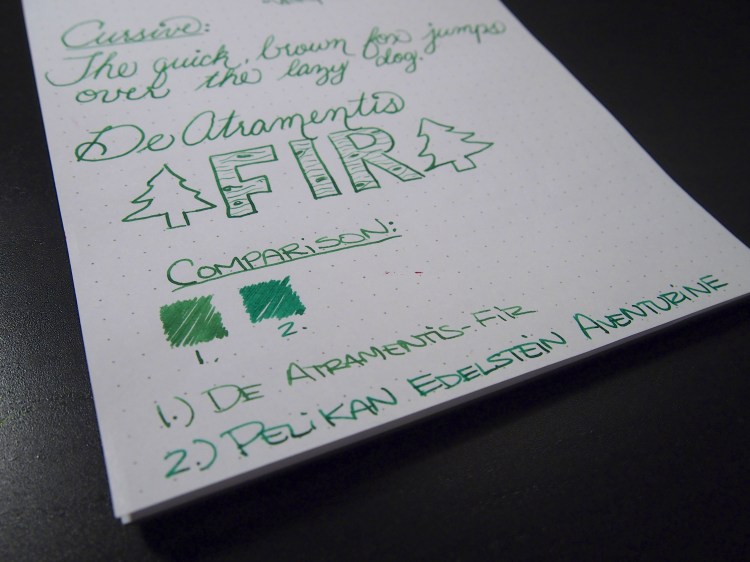 Cursive:
The quick brown fox jumps
over the lazy dog.
De Atramentis
FIR
COMPARISON:
1. 2.
1.) DE ATRAMENTIS-FIR
2.) PELIKAN EDELSTEIN AVENTURINE